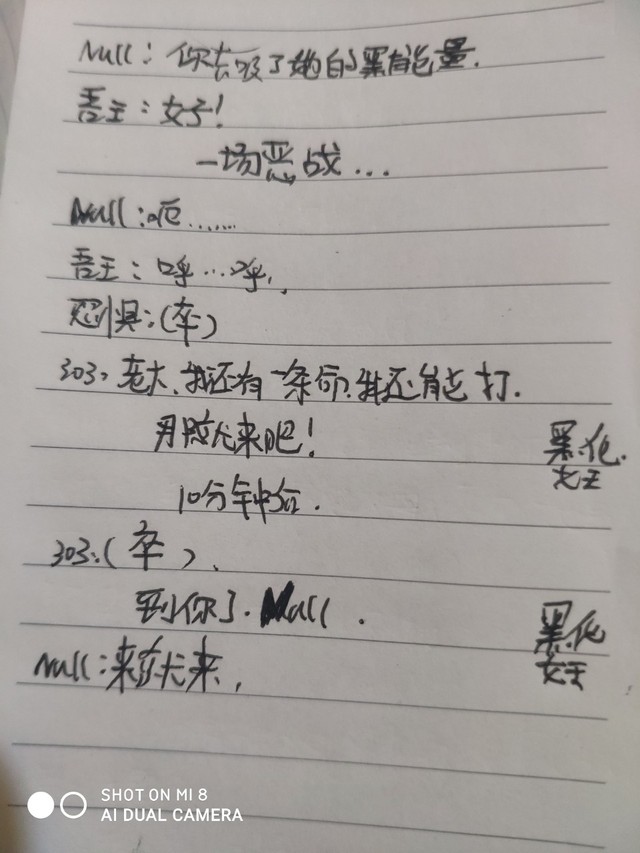 Null：你去吸了她的黑能量.
吾王：女子!
一场恶战...
Null：呃......
吾王：呼...呼..
恐惧：(卒)
303：老大、我还有一条命、我还能打.
来吧!
黑化
女王
10分钟后.
303：(卒)、
到你了. Null.
黑化
女王
Null：来就来，
SHOT ON MI 8
AI DUAL CAMERA